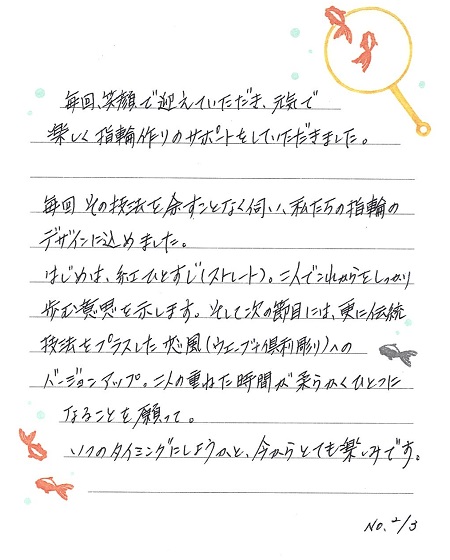 毎回、笑顔で迎えていただき、元気で
楽しく指輪作りのサポートをしていただきました。
毎回その技法を余すことなく伺い、私たちの指輪の
デザインに込めました。
はじめは、紅ひとすじ(ストレート)。二人でこれからをしっかり
歩む意思を示します。そして次の節目には、更に伝統
技法をプラスした恋風(ウェーブ+倶利彫り)への
バージョンアップ。二人の重ねた時間が柔らかくひとつに
なることを願って。
いつのタイミングにしようかと、今からとても楽しみです。
NO. 2/3